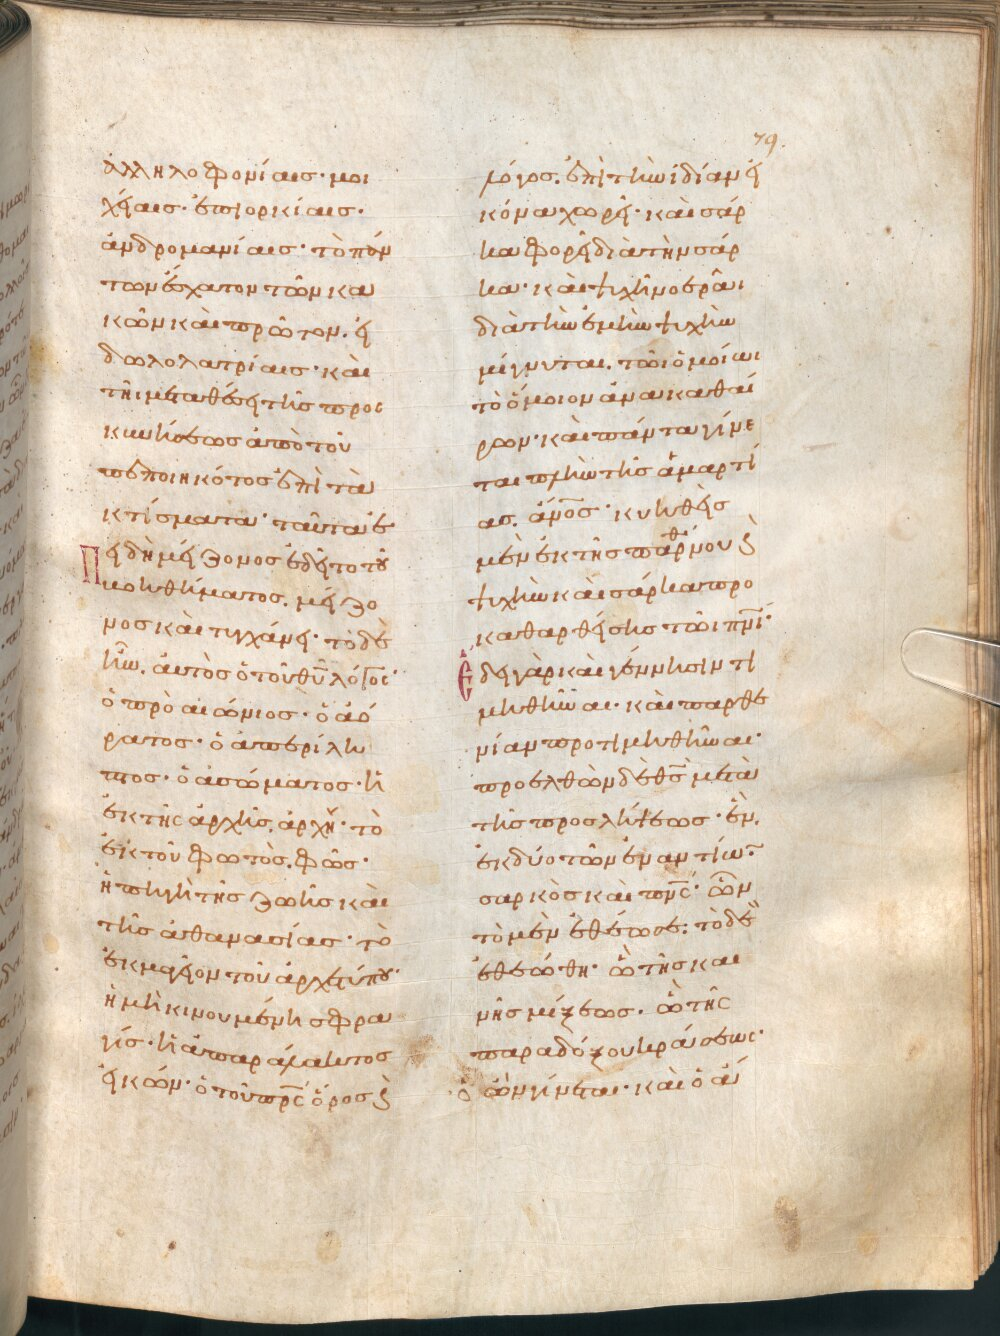 ἀλληλοφονίαις· μοι
χείαις· ἐπιορκίαις·
ἀνδρομανίαις· τὸ πάν
των ἔσχατον τῶν κα
κῶν καὶ πρῶτον. εἰ
δωλολατρίαις· καὶ
τῆι μεταθέσει τῆς προσ
κυνήσεως ἀπὸ τοῦ
πεποιηκότος ἐπὶ τὰ
κτίσματα· ταῦτα ἐ
Πειδὴ μείζονος ἐδεῖτο τοῦ
βοηθήματος. μείζο
νος καὶ τυγχάνει· τὸ δὲ
ἦν. αὐτὸς ὁ τοῦ θυ λόγος·
ὁ προαιώνιος· ὁ ἀό
ρατος· ὁ ἀπερίλη
πτος· ὁ ἀσώματος· ἡ
ἐκ τῆς ἀρχῆς. ἀρχή· τὸ
ἐκ τοῦ φωτὸς. φῶς·
ἡ πηγὴ τῆς ζωῆς καὶ
τῆς ἀθανασίας· τὸ
ἐκμαγεῖον τοῦ ἀρχετύπου·
ἡ μὴ κινουμένη σφρα
γίς· ἡ ἀπαράλλακτος
εἰκών· ὁ τοῦ πρς ὅρος ϗ
79.
λόγος. ἐπὶ τὴν ἰδίαν εἰ
κόνα χωρεῖ· καὶ σάρ
κα φορεῖ διὰ τὴν σάρ
κα· καὶ ψυχῆι νοερᾶι
διὰ τὴν ἐμὴν ψυχὴν
μίγνυται. τῶι ὁμοίωι
τὸ ὅμοιον ἀνακαθαί
ρων· καὶ πάντα γίνε
ται πλὴν τῆς ἁμαρτί
ας. ἄνος· κυηθεὶς
μὲν ἐκ τῆς παρθένου ϗ
ψυχὴν καὶ σάρκα προ
καθαρθείσης τῶι πνι·
Ἔδει γὰρ καὶ γέννησιν τι
μηθῆναι· καὶ παρθε
νίαν προτιμηθῆναι·
προελθὼν δὲ θς μετὰ
τῆς προσλήψεως· ἓν.
ἐκ δύο τῶν ἐναντίων·
σαρκὸς καὶ πνς· ὧν
τὸ μὲν ἐθέωσε: τὸ δὲ
ἐθεώθη· ὢ τῆς και
νῆς μίξεως· ὢ τῆς
παραδόξου κράσεως·
ὁ ὢν γίνεται· καὶ ὁ ἄ